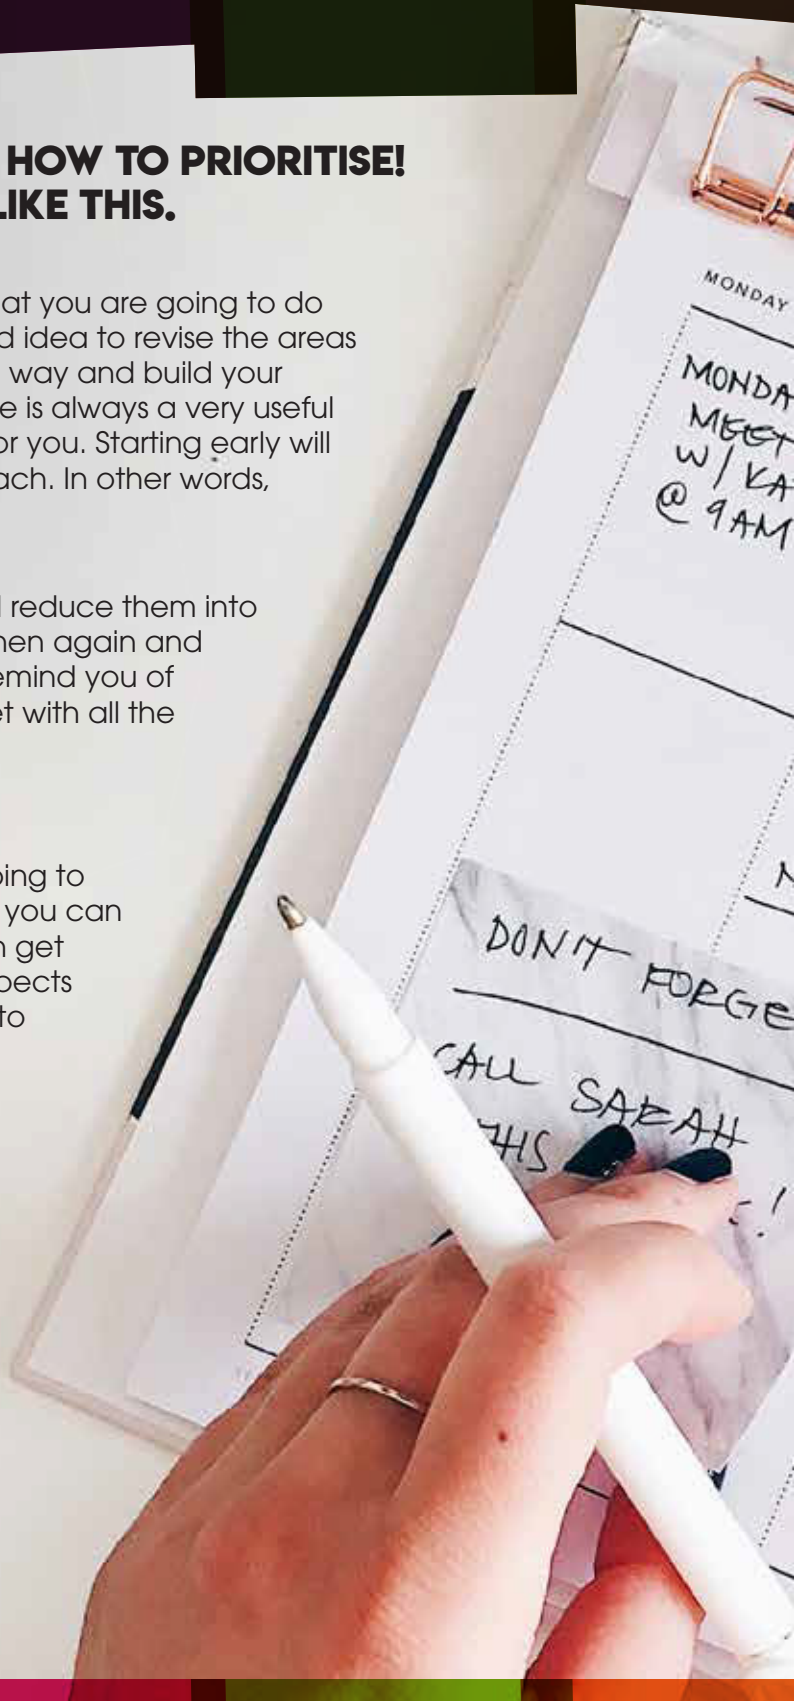 HOW TO PRIORITISE!
LIKE THIS.
at you are going to do
d idea to revise the areas
way and build your
e is always a very useful
or you. Starting early will
ach. In other words,
reduce them into
hen again and
emind you of
et with all the
oing to
you can
n get
pects
to
MONDAY
MONDA
MEET
W/ KA
@ 9AM
DON'T FORGE
CALL SARAH
THIS
!